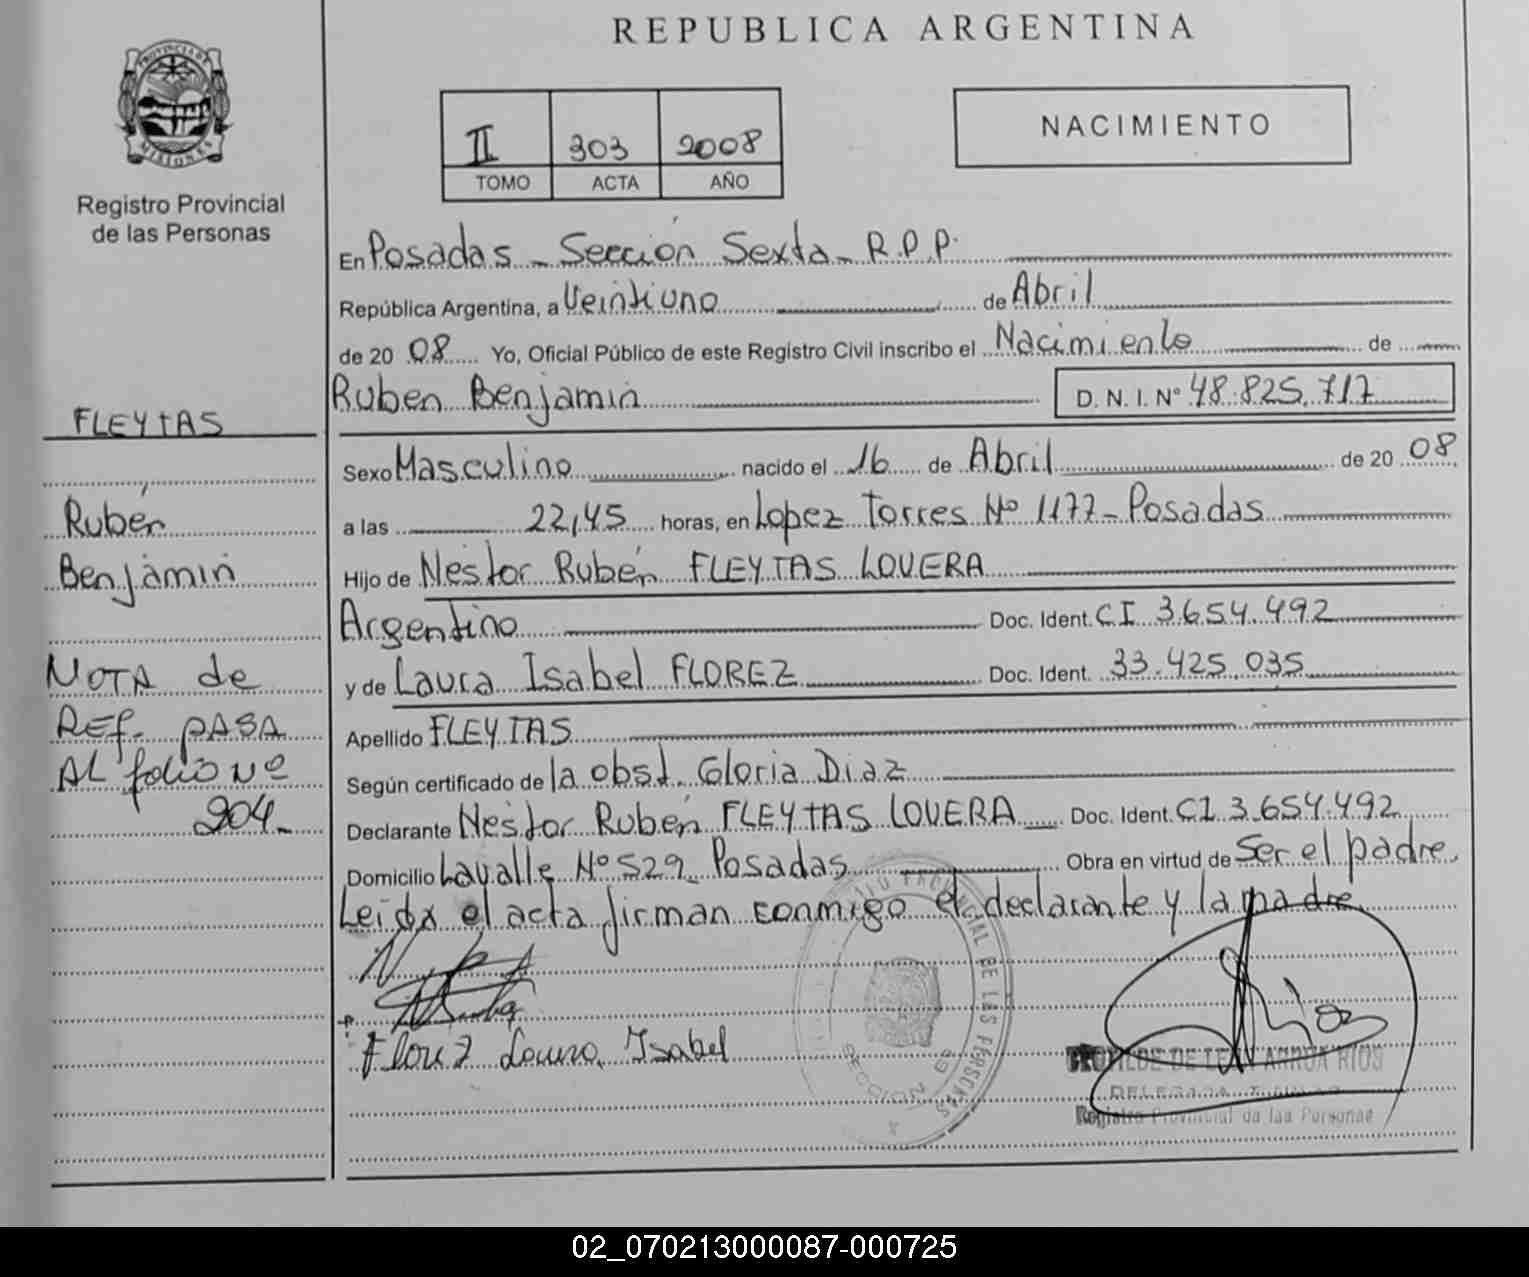 REPUBLICA ARGENTINA
PROVINCIA DE
MISIONES
Registro Provincial
de las Personas
II 303 2008
TOMO ACTA AÑO
NACIMIENTO
En Posadas - Sección Sexta - R.P.P.
República Argentina, a Veintiuno de Abril
de 20 08 Yo, Oficial Público de este Registro Civil inscribo el Nacimiento de
Ruben Benjamin D. N. I. Nº 48.825.717
FLEYTAS
Sexo Masculino nacido el 16 de Abril de 20 08
Rubén
a las 22,45 horas, en Lopez Torres Nº 1177 - Posadas
Benjamin
Hijo de Nestor Rubén FLEYTAS LOVERA
Argentino Doc. Ident. CI 3.654.492
NOTA de
y de Laura Isabel FLOREZ Doc. Ident. 33.425.035
REF. PASA
Apellido FLEYTAS
AL folio Nº
Según certificado de la obst. Gloria Diaz
204-
Declarante Nestor Rubén FLEYTAS LOVERA Doc. Ident. CI 3.654.492
Domicilio Lavalle Nº 529 Posadas Obra en virtud de Ser el padre.
Leida el acta firman conmigo el declarante y la madre
Florez Laura Isabel
PROVINCIAL DE LAS PERSONAS
SECCION 6ª
DE LEON ARRUA RIOS
DELEGADA
Registro Provincial de las Personas
02_070213000087-000725